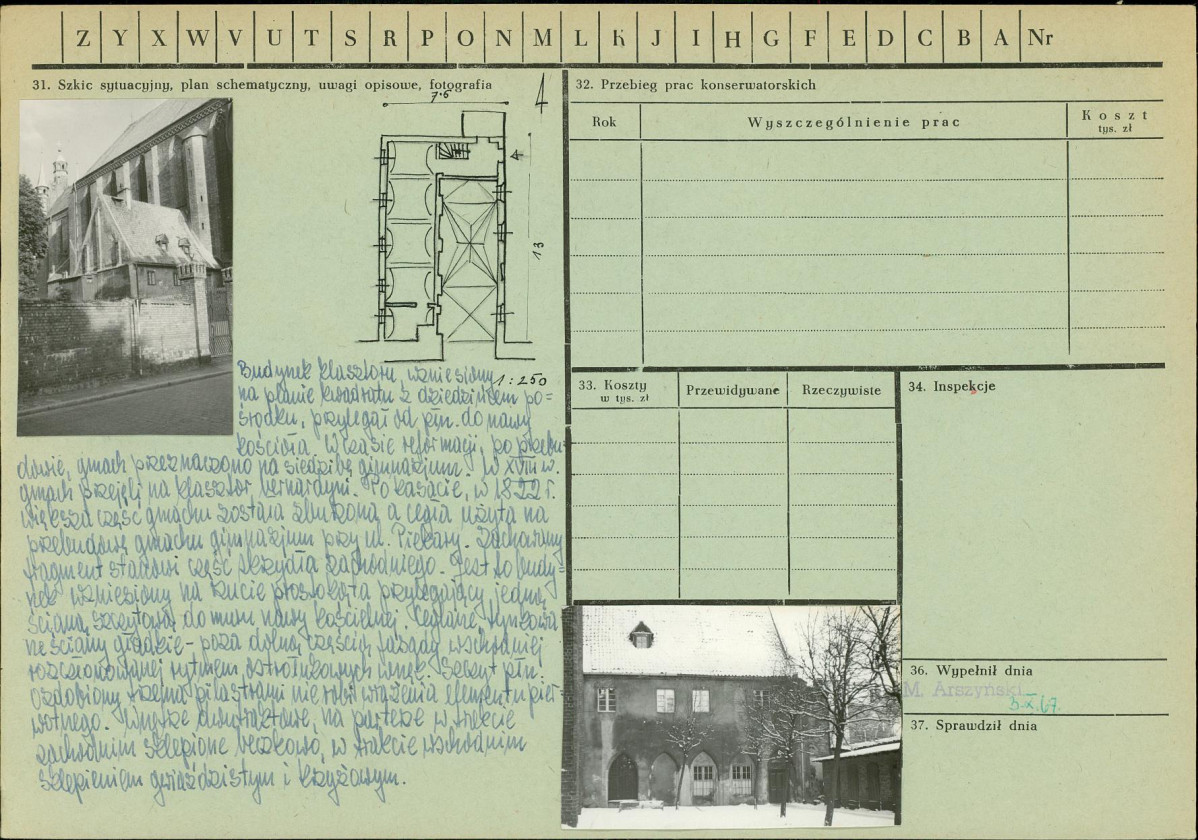 Z Y X W V U T S R P O N M L K J I H G F E D C B A Nr
31. Szkic sytuacyjny, plan schematyczny, uwagi opisowe, fotografia
7.6
4
13
1:250
Budynek klasztoru, wzniesiony
na planie kwadratu z dziedzińcem po=
środku, przylegał od płn. do nawy
kościoła. W czasie reformacji, po przebu-
dowie, gmach przeznaczono na siedzibę gimnazjum. W XVIII w.
gmach przejęli na klasztor bernardyni. Po kasacie, w 1822 r.
większa część gmachu została zburzona a cegła użyta na
przebudowę gmachu gimnazjum przy ul. Piekary. Zachowany
fragment stanowi część skrzydła zachodniego. Jest to budy-
nek wzniesiony na rzucie prostokąta przylegający jedną
ścianą szczytową do muru nawy kościelnej. Ceglane tynkowa
ne ściany gładkie - poza dolną częścią fasady wschodniej
rozczłonkowanej rytmem ostrołukowych wnęk. Szczyt płn.
ozdobiony trzema pilastrami nie robi wrażenia elementu pier
wotnego. Wnętrze dwutraktowe, na parterze w trakcie
zachodnim sklepione beczkowo, w trakcie wschodnim
sklepieniem gwiaździstym i krzyżowym.
32. Przebieg prac konserwatorskich
Rok
Wyszczególnienie prac
Koszt
tys. zł
33. Koszty
w tys. zł
Przewidywane
Rzeczywiste
34. Inspekcje
36. Wypełnił dnia
M. Arszyński
5.X.67.
37. Sprawdził dnia